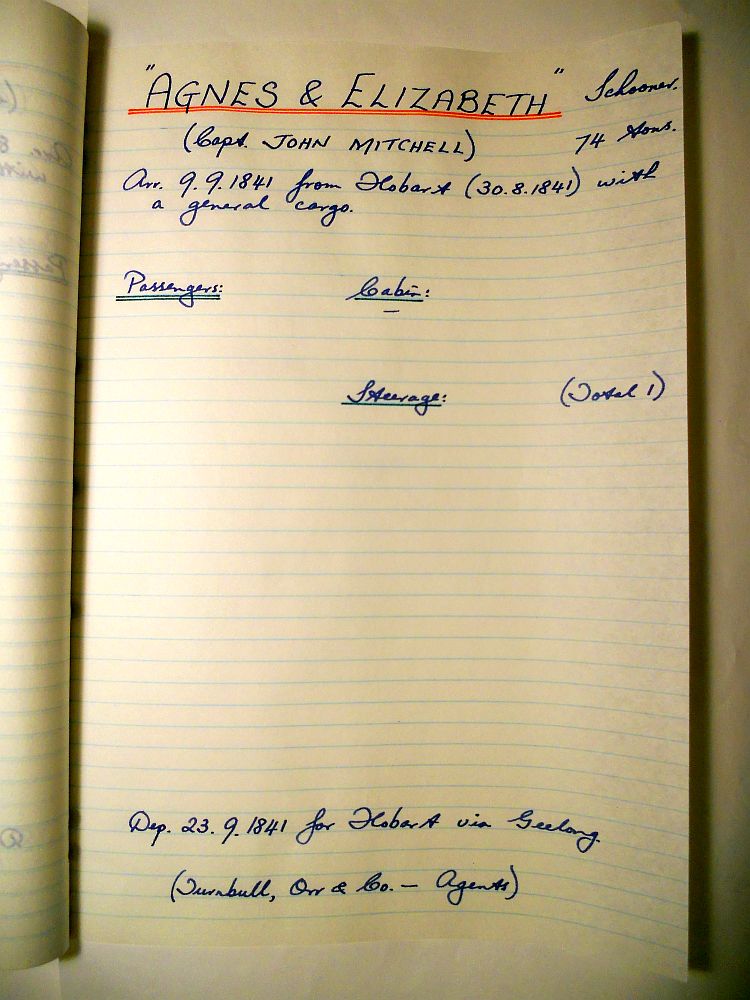 "AGNES & ELIZABETH" Schooner.
(Capt. JOHN MITCHELL) 74 tons.
Arr. 9.9.1841 from Hobart (30.8.1841) with
a general cargo.
Passengers: Cabin:
–
Steerage: (Total 1)
Dep. 23.9.1841 for Hobart via Geelong.
(Turnbull, Orr & Co. — Agents)